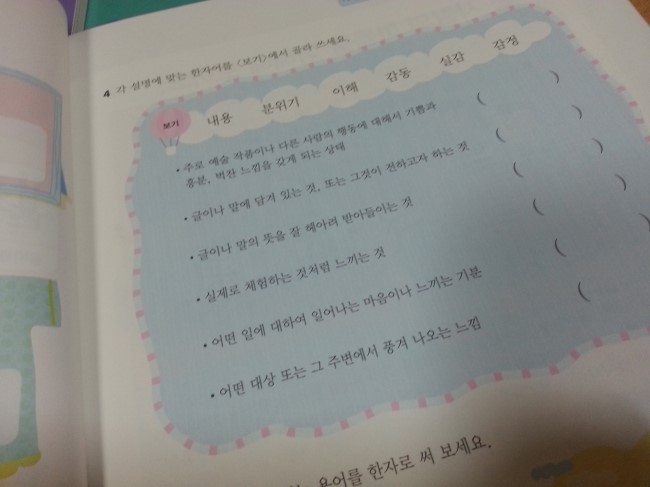 4 각 설명에 맞는 한자어를 <보기>에서 골라 쓰세요.
보기 내용 분위기 이해 감동 실감 감정
• 주로 예술 작품이나 다른 사람의 행동에 대해서 기쁨과 ( )
흥분, 벅찬 느낌을 갖게 되는 상태
• 글이나 말에 담겨 있는 것, 또는 그것이 전하고자 하는 것 ( )
• 글이나 말의 뜻을 잘 헤아려 받아들이는 것 ( )
• 실제로 체험하는 것처럼 느끼는 것 ( )
• 어떤 일에 대하여 일어나는 마음이나 느끼는 기분 (
• 어떤 대상 또는 그 주변에서 풍겨 나오는 느낌 (
용어를 한자로 써 보세요.